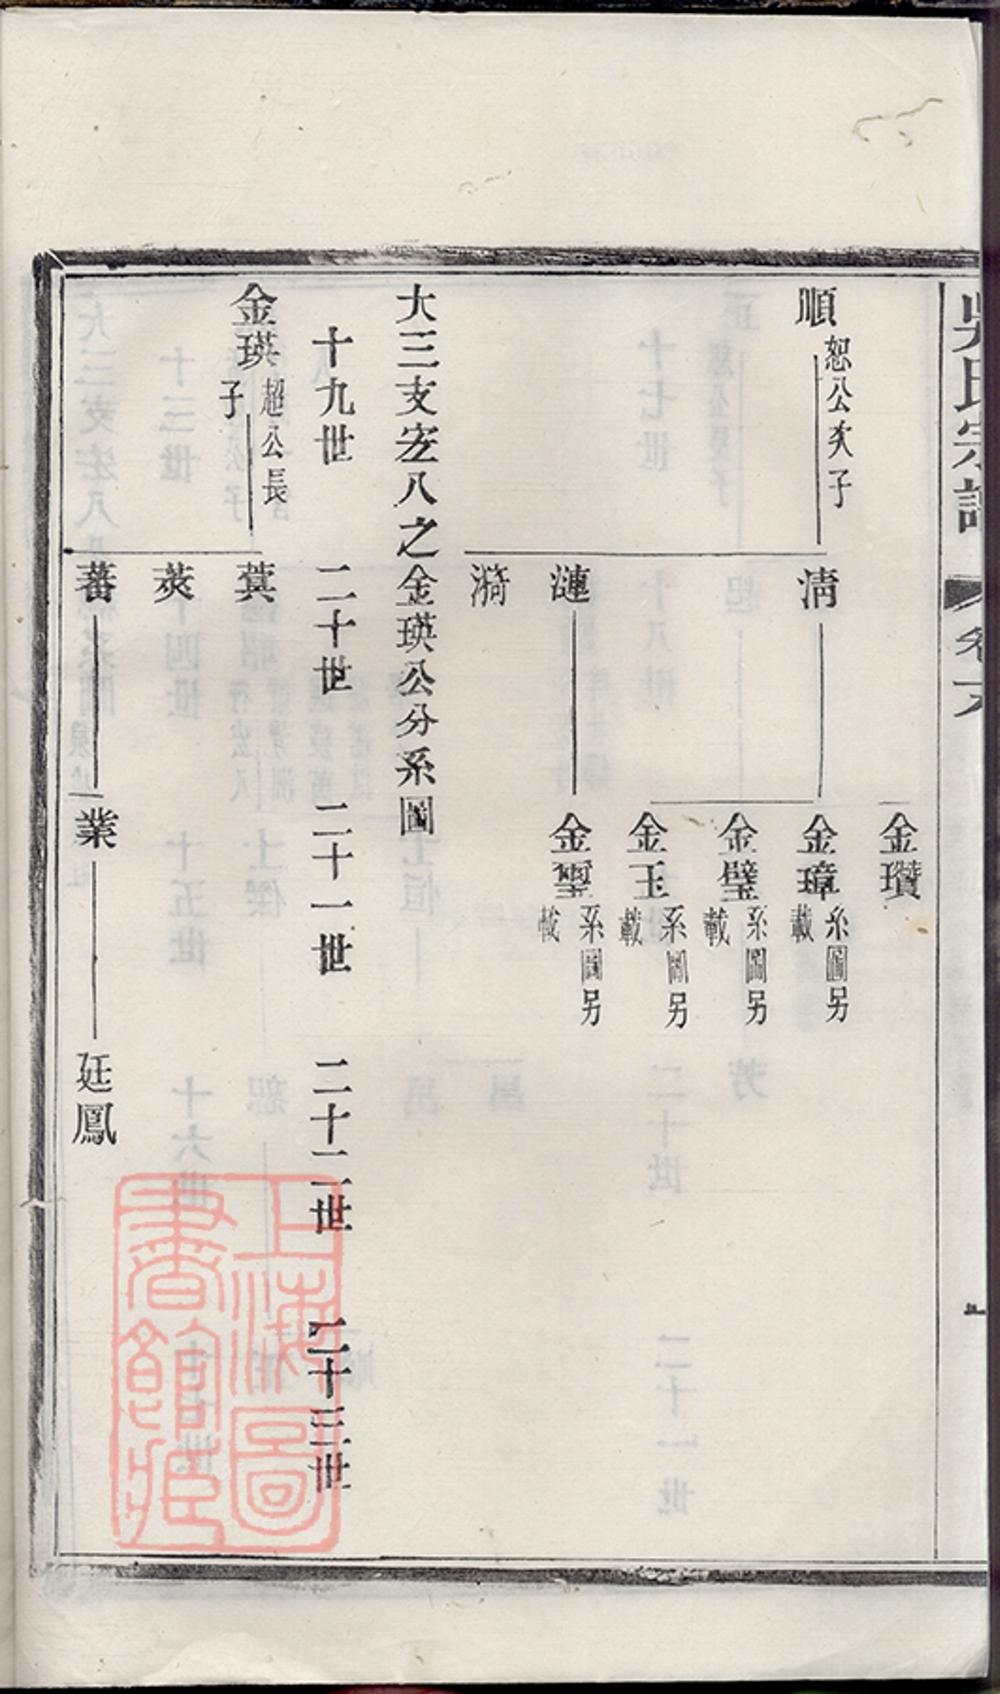 吳氏宗譜
卷六
金瓚
順 恕公次子
清
金璋 系圖另載
金璧 系圖另載
金玉 系圖另載
漣
金璽 系圖另載
漪
大三支宏八之金瑛公分系圖
十九世 二十世 二十一世 二十二世 二十三世
金瑛 超公長子
蓂
蒅
蕃
業
廷鳳
上海圖
書館藏